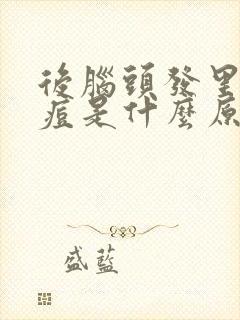 後腦頭發里
痘是什麼原
盛藍